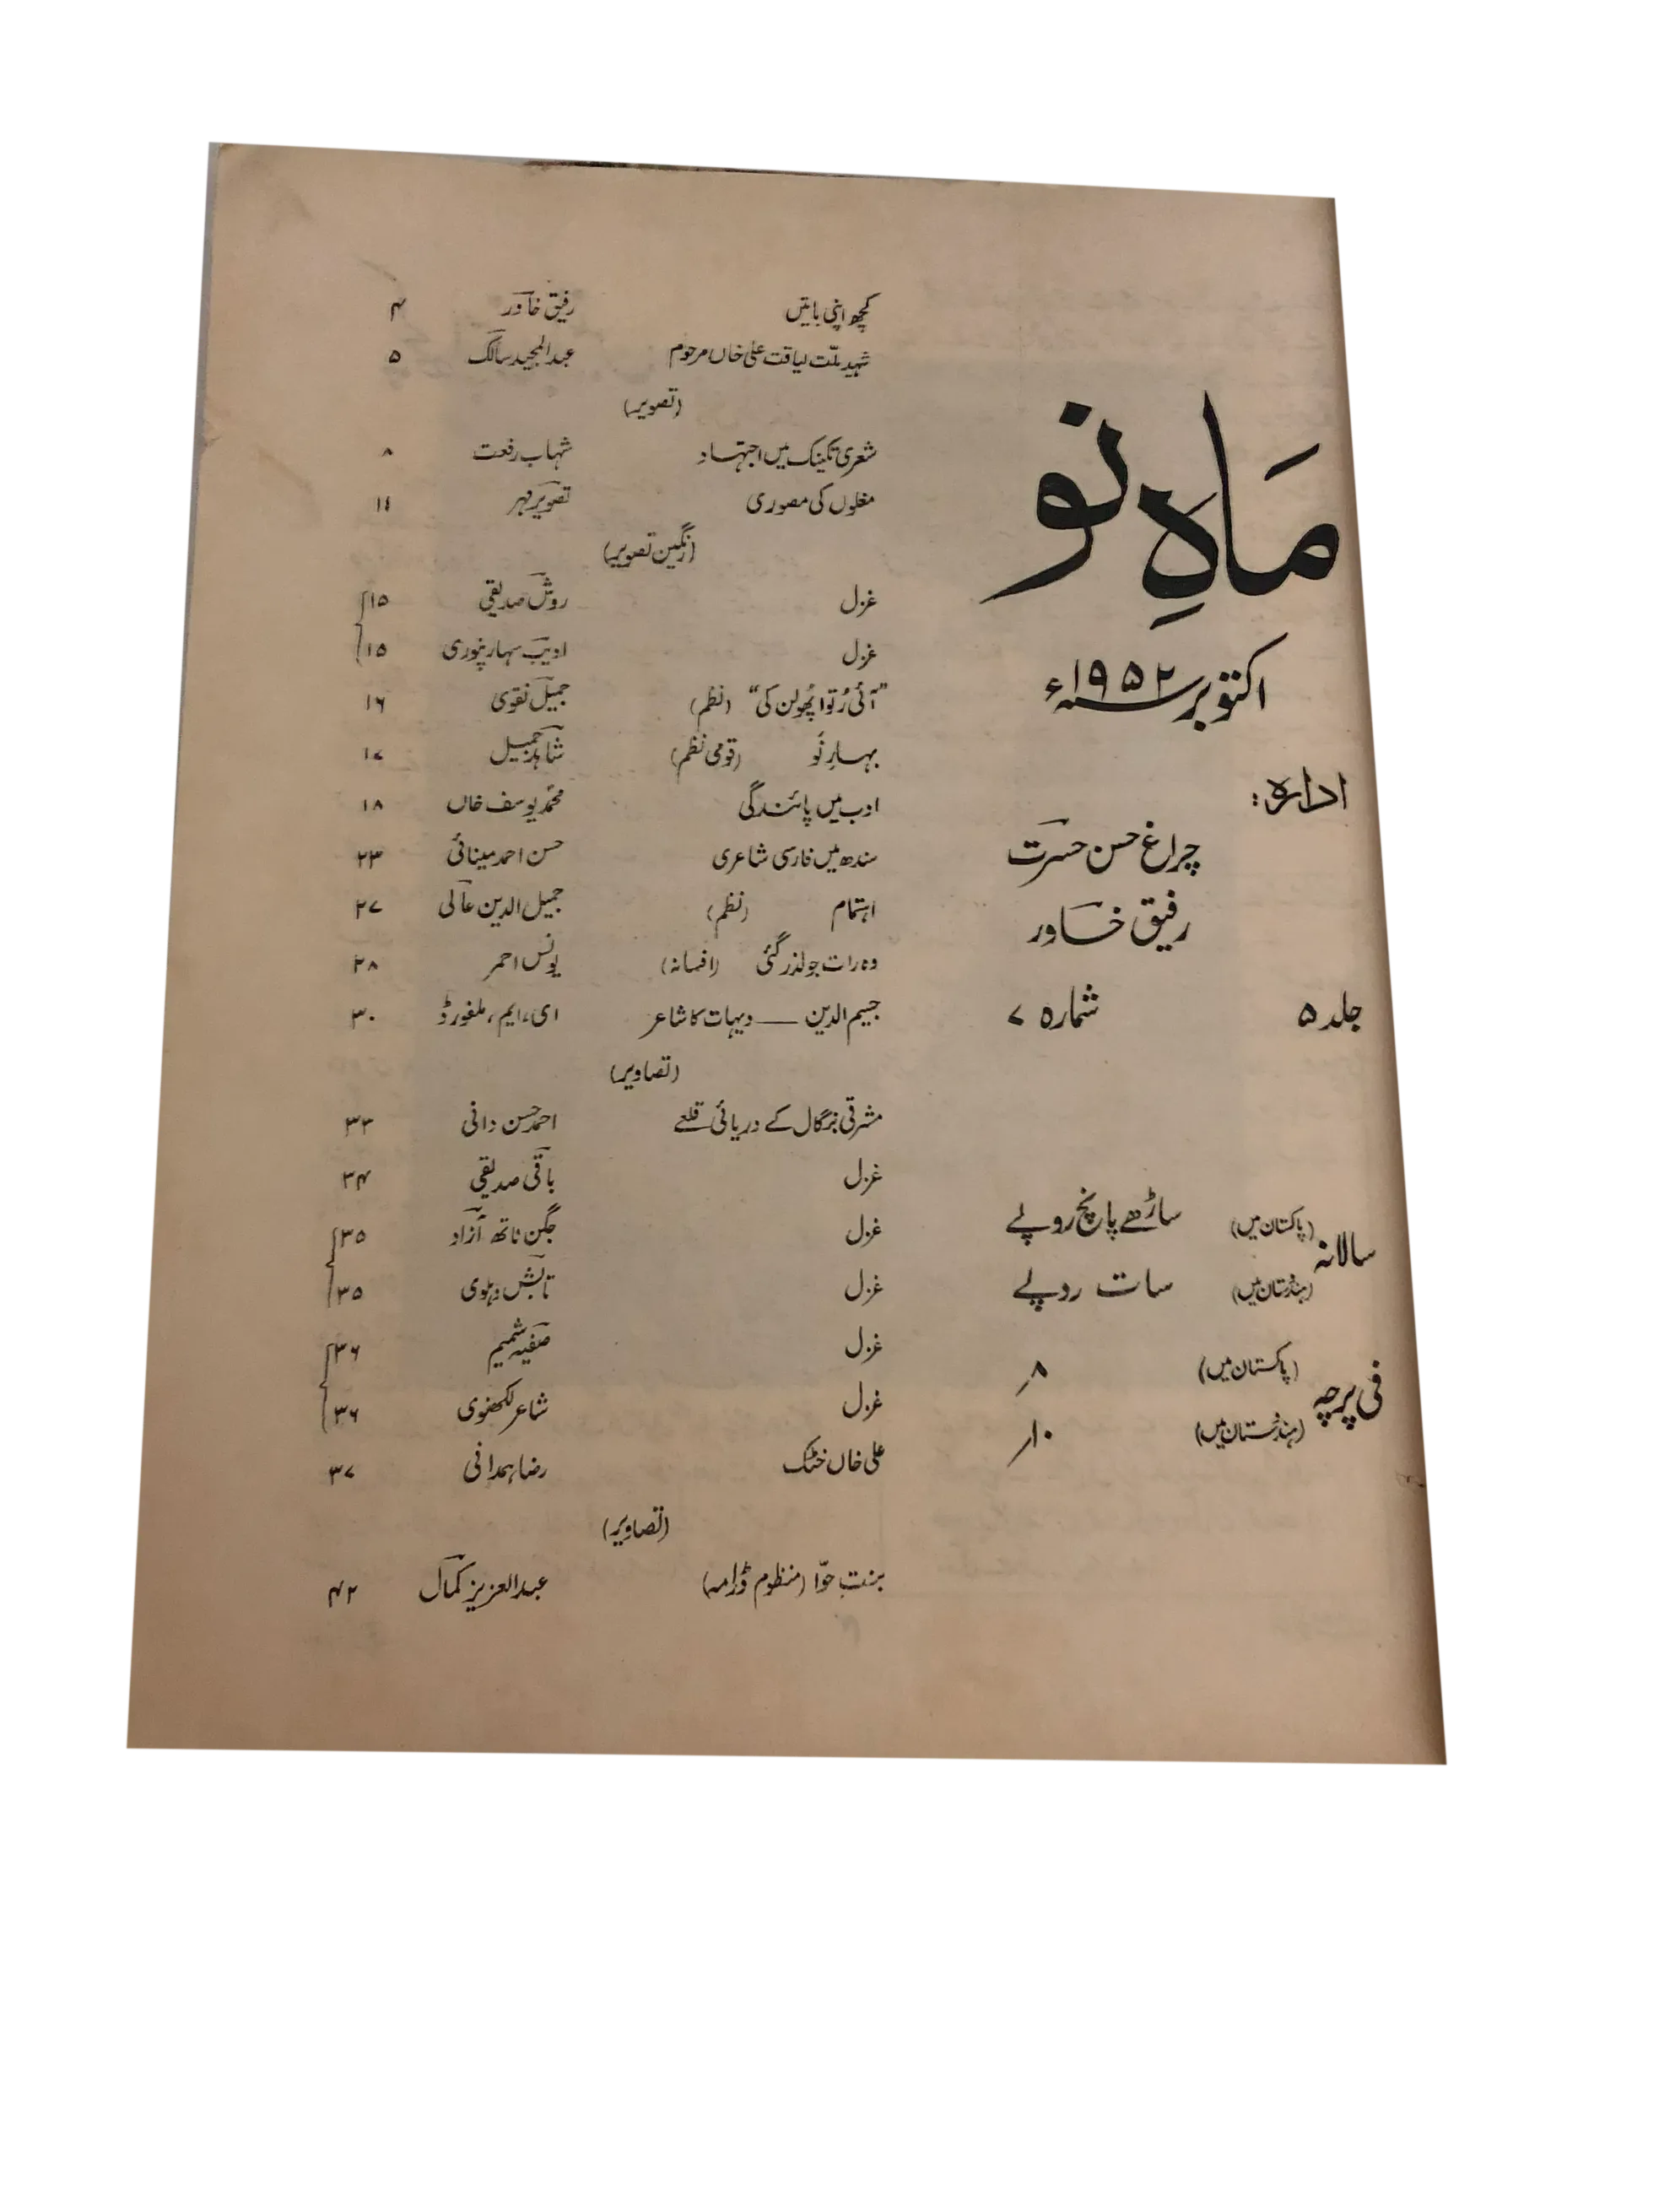 ماہِ نو
اکتوبر سنہ ۱۹۵۲ء
ادارہ:
چراغ حسن حسرت
رفیق خاور
جلد ۵ شمارہ ۷
سالانہ (پاکستان میں) ساڑھے پانچ روپے
(ہندوستان میں) سات روپے
فی پرچہ (پاکستان میں) ۸؍
(ہندوستان میں) ۱۰؍
کچھ اپنی باتیں رفیق خاور ۴
شہیدِ ملّت لیاقت علی خاں مرحوم عبدالمجید سالک ۵
(تصویر)
شعری تکنیک میں اجتہاد شہاب رفعت ۸
مغلوں کی مصوری تصویر مہر ۱۱
(رنگین تصویر)
غزل روش صدیقی ۱۵
غزل ادیب سہارنپوری ۱۵
”آئی رُتوا پُھولن کی“ (نظم) جمیل نقوی ۱۶
بہارِ نَو (قومی نظم) شاہد جمیل ۱۷
ادب میں پائندگی محمد یوسف خاں ۱۸
سندھ میں فارسی شاعری حسن احمد مینائی ۲۳
اہتمام (نظم) جمیل الدین عالی ۲۷
وہ رات جو گذر گئی (افسانہ) یونس احمر ۲۸
جسیم الدین —— دیہات کا شاعر ای، ایم، ملفورڈ ۳۰
(تصاویر)
مشرقی بنگال کے دریائی قلعے احمد حسن دانی ۳۳
غزل باقی صدیقی ۳۴
غزل جگن ناتھ آزاد ۳۵
غزل تابش دہلوی ۳۵
غزل صفیہ شمیم ۳۶
غزل شاعر لکھنوی ۳۶
علی خاں خٹک رضا ہمدانی ۳۷
(تصاویر)
بنتِ حوّا (منظوم ڈرامہ) عبدالعزیز کمال ۴۲